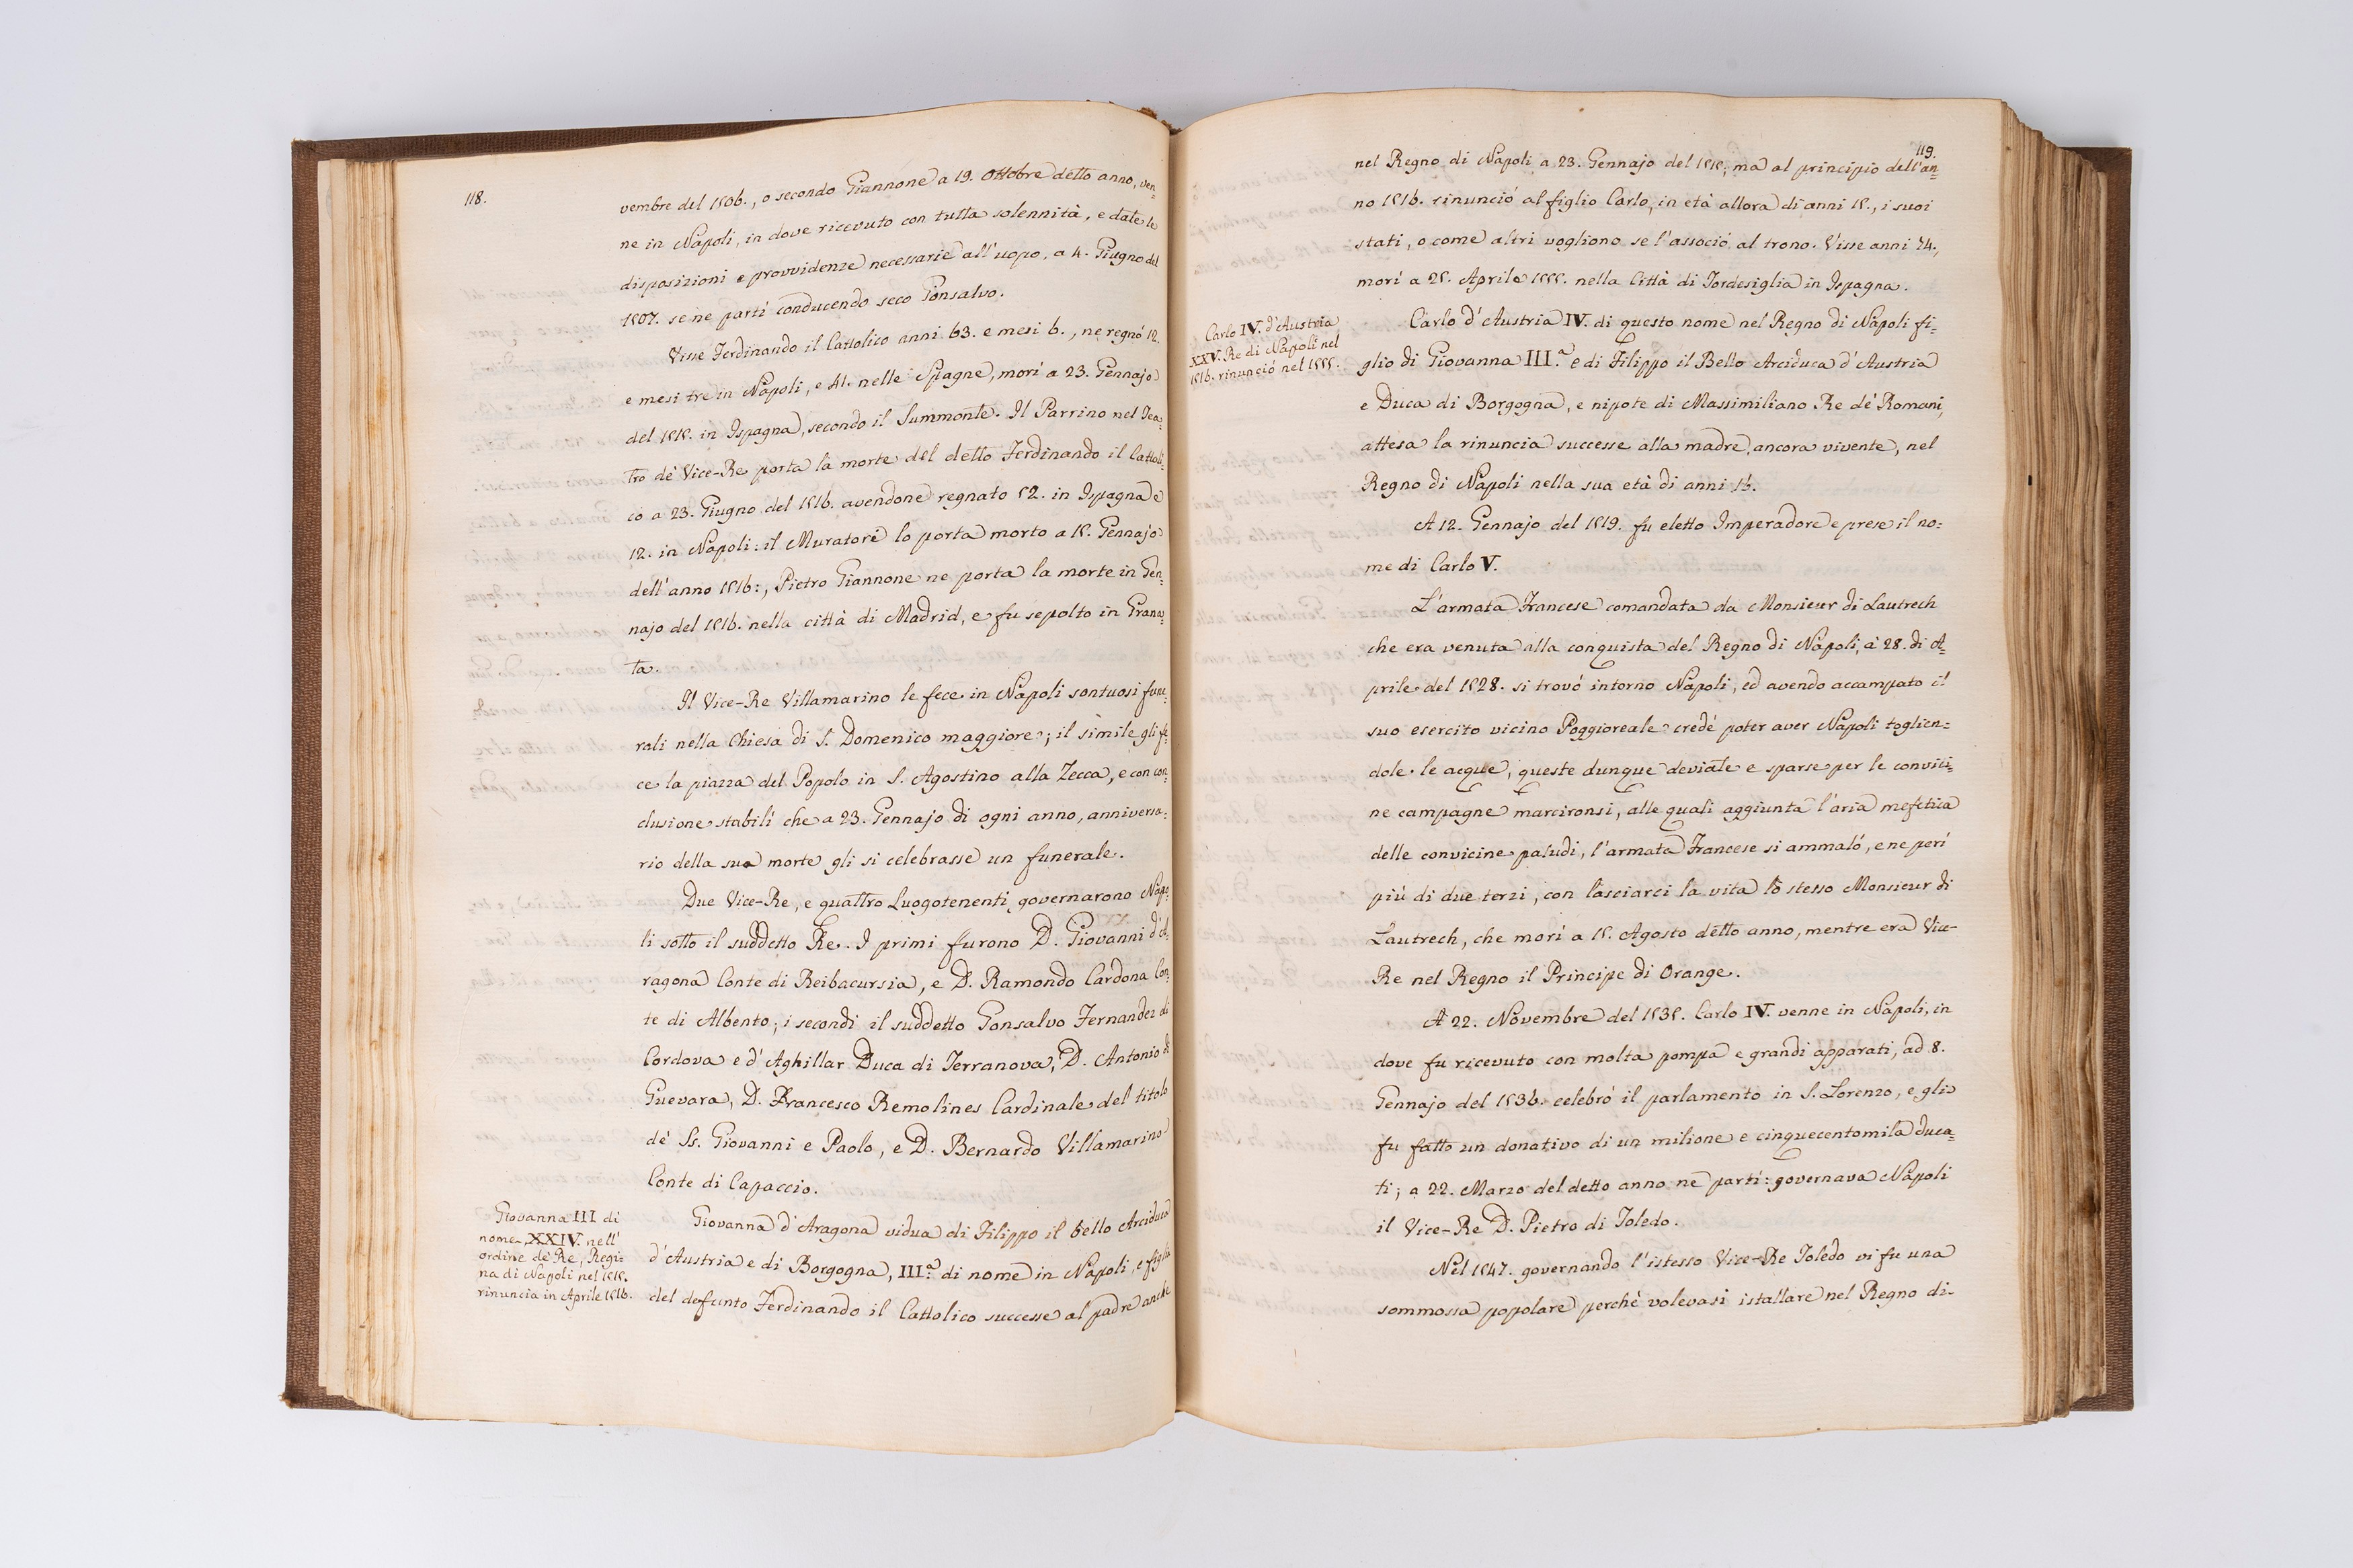 118.
vembre del 1506., o secondo Giannone a 19. Ottobre detto anno, ven=
ne in Napoli, in dove ricevuto con tutta solennità, e date le
disposizioni e provvidenze necessarie all'uopo, a 4. Giugno del
1507. se ne partì conducendo seco Gonsalvo.
Visse Ferdinando il Cattolico anni 63. e mesi 6., ne regnò 12.
e mesi tre in Napoli, e 41. nelle Spagne, morì a 23. Gennajo
del 1515. in Ispagna, secondo il Summonte. Il Parrino nel Tea=
tro de' Vice-Re porta la morte del detto Ferdinando il Cattoli=
co a 23. Giugno del 1516. avendone regnato 52. in Ispagna e
12. in Napoli: il Muratori lo porta morto a 15. Gennajo
dell'anno 1516:, Pietro Giannone ne porta la morte in Gen=
najo del 1516. nella città di Madrid, e fu sepolto in Grana=
ta.
Il Vice-Re Villamarino le fece in Napoli sontuosi fune=
rali nella Chiesa di S. Domenico maggiore; il simile gli fe=
ce la piazza del Popolo in S. Agostino alla Zecca, e con con=
clusione stabilì che a 23. Gennajo di ogni anno, anniversa=
rio della sua morte gli si celebrasse un funerale.
Due Vice-Re, e quattro Luogotenenti governarono Napo=
li sotto il suddetto Re. I primi furono D. Giovanni d'A=
ragona Conte di Reibacursia, e D. Ramondo Cardona Con=
te di Albento; i secondi il suddetto Gonsalvo Fernandez di
Cordova e d'Aghillar Duca di Terranova, D. Antonio di
Guevara, D. Francesco Remolines Cardinale del titolo
de' Ss. Giovanni e Paolo, e D. Bernardo Villamarino
Conte di Capaccio.
Giovanna III di
nome XXIV. nell'
ordine de' Re, Regi=
na di Napoli nel 1515.
rinuncia in Aprile 1516.
Giovanna d'Aragona vidua di Filippo il bello Arciduca
d'Austria e di Borgogna, III.ª di nome in Napoli, e figlia
del defunto Ferdinando il Cattolico successe al padre anche
119.
nel Regno di Napoli a 23. Gennajo del 1515; ma al principio dell'an=
no 1516. rinunciò al figlio Carlo, in età allora di anni 15., i suoi
stati, o come altri vogliono se l'associò al trono. Visse anni 74.,
morì a 25. Aprile 1555. nella Città di Tordesiglia in Ispagna.
Carlo IV. d'Austria
XXV. Re di Napoli nel
1516. rinunciò nel 1555.
Carlo d'Austria IV. di questo nome nel Regno di Napoli fi=
glio di Giovanna III.ª e di Filippo il Bello Arciduca d'Austria
e Duca di Borgogna, e nipote di Massimiliano Re de' Romani,
attesa la rinuncia successe alla madre, ancora vivente, nel
Regno di Napoli nella sua età di anni 16.
A 12. Gennajo del 1519. fu eletto Imperadore e prese il no=
me di Carlo V.
L'armata Francese comandata da Monsieur di Lautrech
che era venuta alla conquista del Regno di Napoli, a 28. di A=
prile del 1528. si trovò intorno Napoli, ed avendo accampato il
suo esercito vicino Poggioreale credè poter aver Napoli toglien=
dole le acque, queste dunque deviate e sparse per le convici=
ne campagne marcironsi, alle quali aggiunta l'aria mefetica
delle convicine paludi, l'armata Francese si ammalò, e ne perì
più di due terzi, con lasciarci la vita lo stesso Monsieur di
Lautrech, che morì a 15. Agosto detto anno, mentre era Vice-
Re nel Regno il Principe di Orange.
A 22. Novembre del 1535. Carlo IV. venne in Napoli, in
dove fu ricevuto con molta pompa e grandi apparati, ad 8.
Gennajo del 1536. celebrò il parlamento in S. Lorenzo, e gli
fu fatto un donativo di un milione e cinquecentomila duca=
ti; a 22. Marzo del detto anno ne partì: governava Napoli
il Vice-Re D. Pietro di Toledo.
Nel 1547. governando l'istesso Vice-Re Toledo vi fu una
sommossa popolare perchè volevasi istallare nel Regno di-